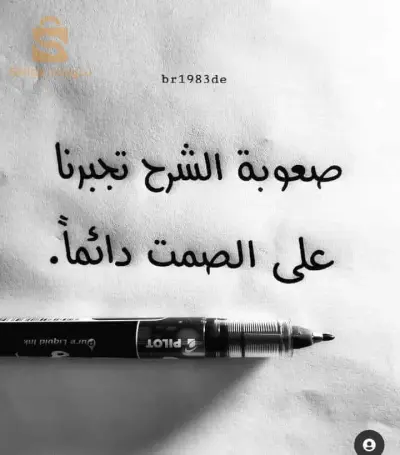 br1983de
صعوبة الشرح تجبرنا
على الصمت دائماً.
Pure Liquid Ink
PILOT